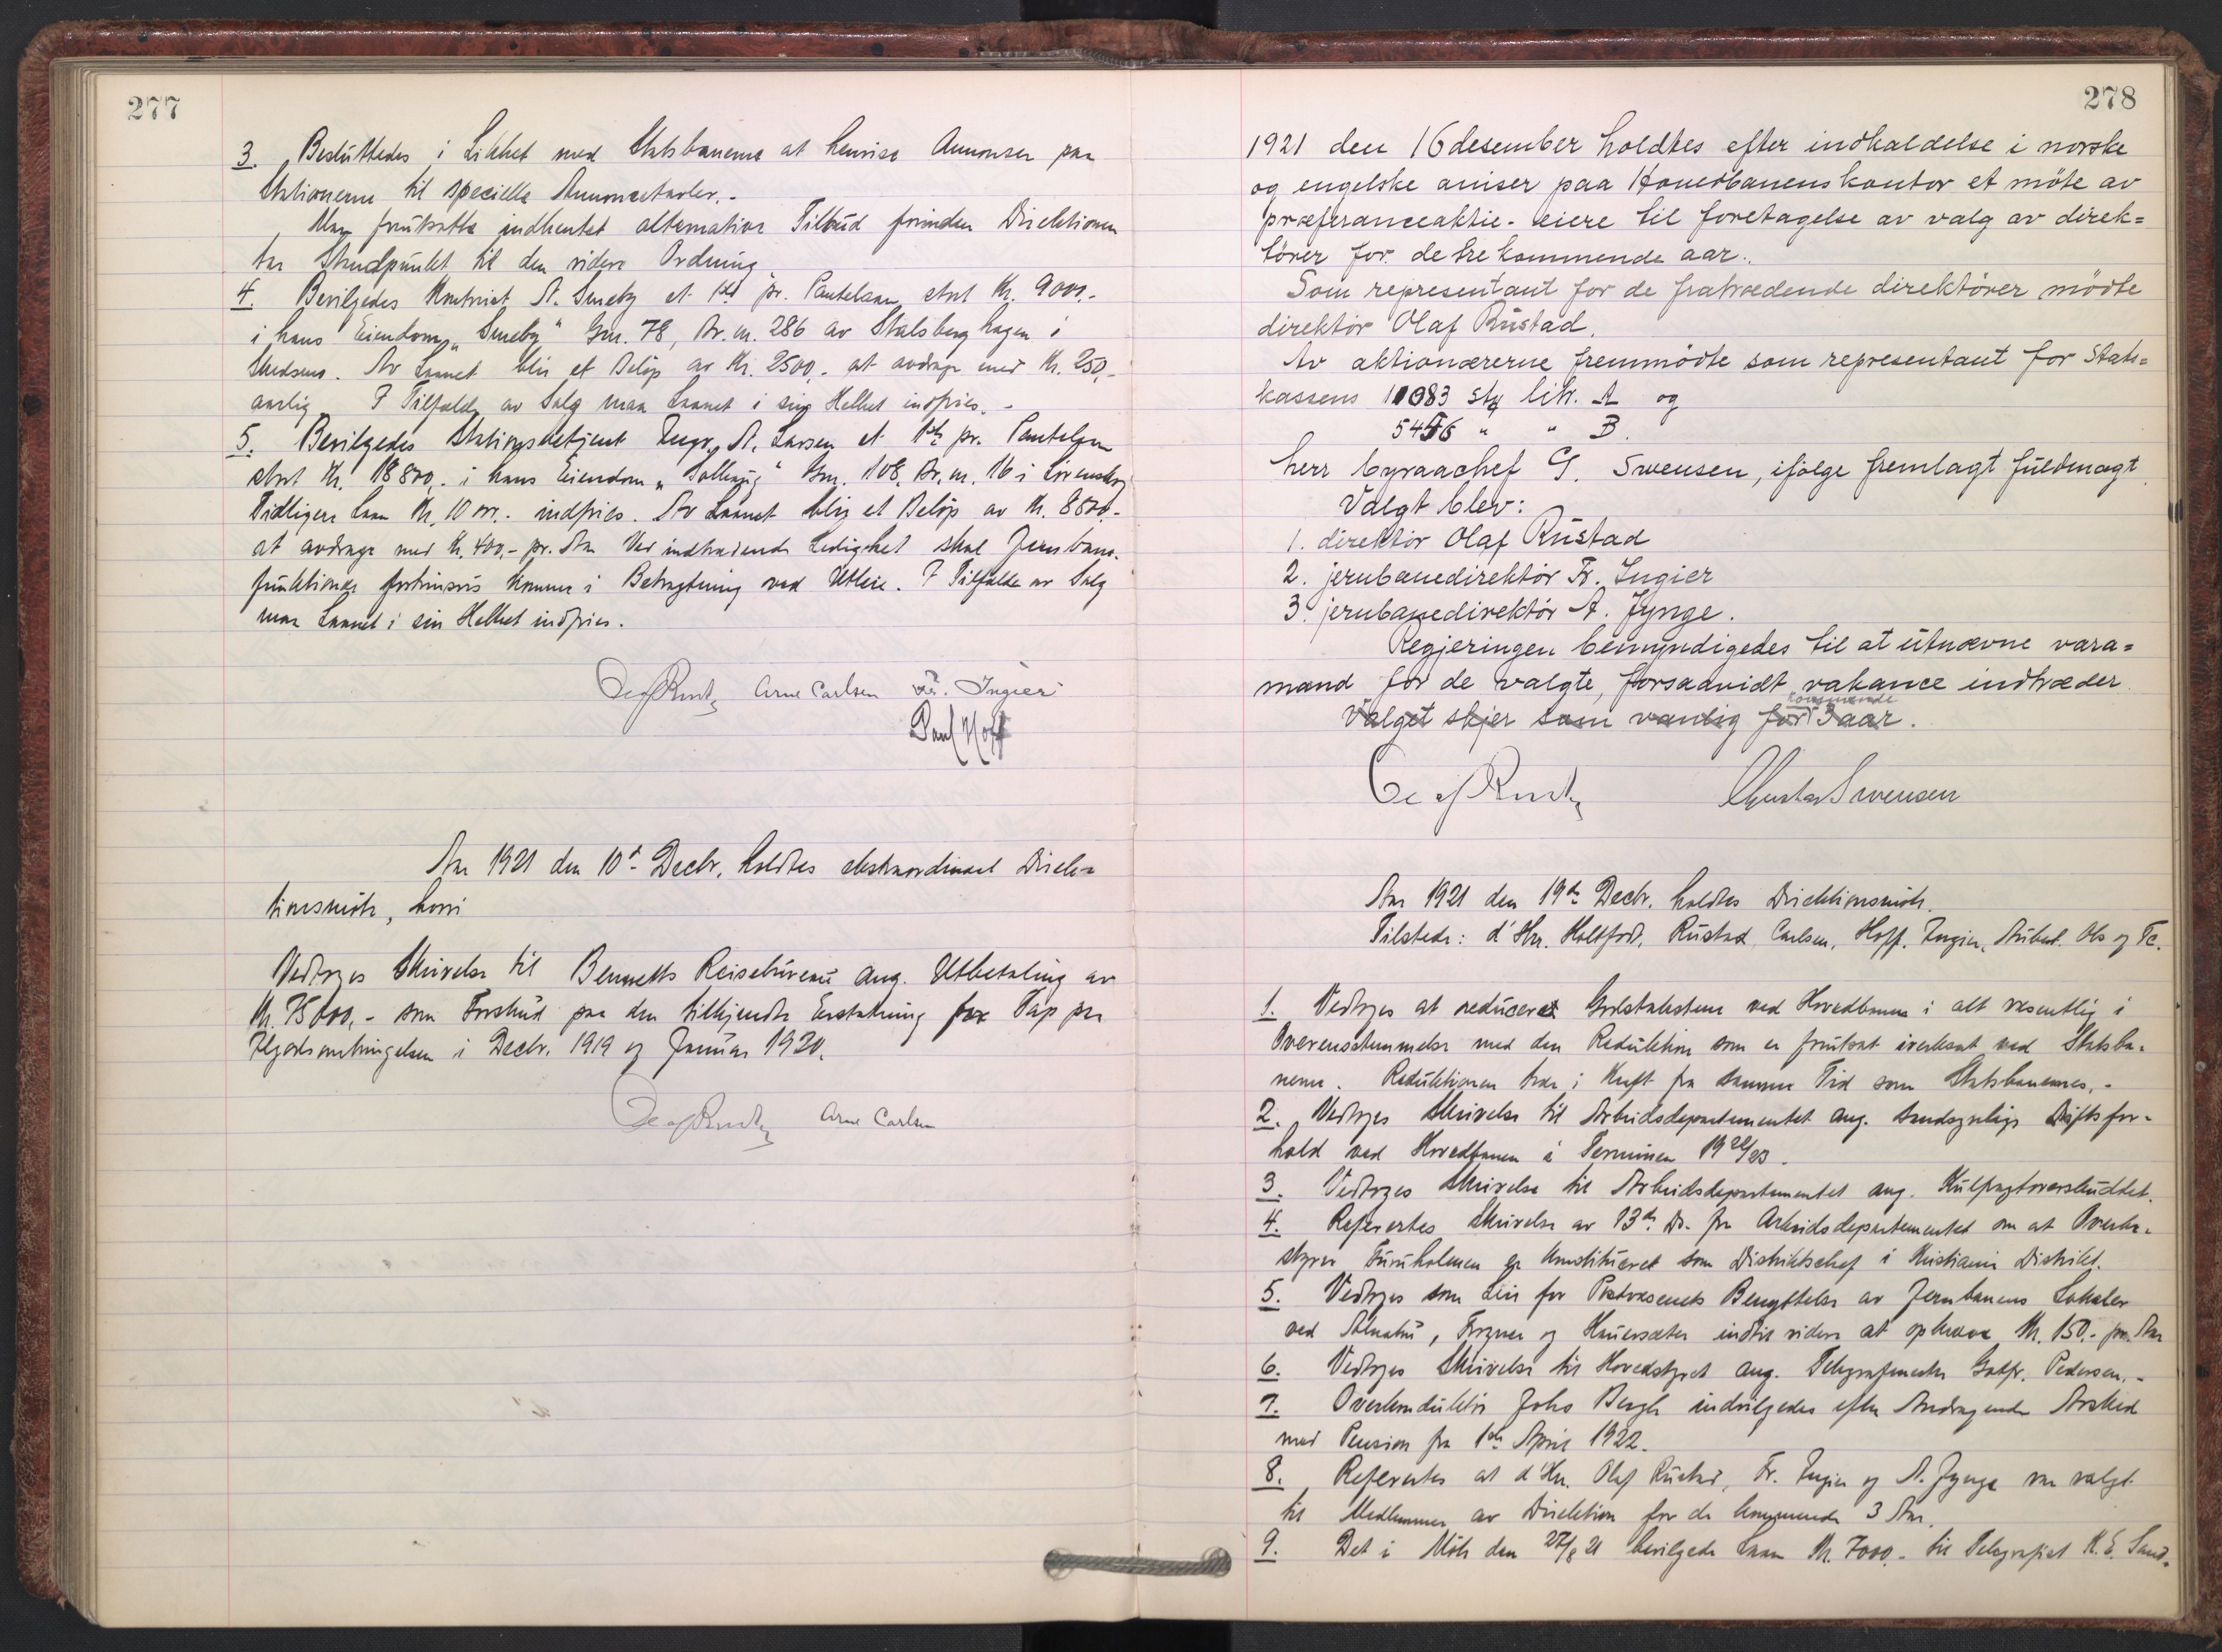 277
3. Besluttedes i Likhet med Statsbanerne at henvise Annonser paa
Stationerne til specielle Annoncetavler.-
Man forutsatte indhentet alternative Tilbud forinden Direktionen
tar Standpunkt til den videre Ordning
4. Bevilgedes Kontorist A. Smeby et 1ste pr. Pantelaan stort Kr. 9000,-
i hans Eiendom "Smeby" Gn. 78, Br. n. 286 av Stalsberghagen i
Skedsmo. Av Laanet blir et Beløp av Kr. 2500,- at avdrage med Kr. 250,-
aarlig. I Tilfælde av Salg maa Laanet i sin Helhet indfries. -
5. Bevilgedes Stationsbetjent Ingv. A. Larsen et 1ste pr. Pantelaan
stort Kr. 18800,- i hans Eiendom "Solhaug" Gn. 108, Br. n. 16 i Lørenskog
Tidligere Laan Kr. 10 000.- indfries. Av Laanet blir et Beløp av Kr. 8800,-
at avdrage med Kr. 400,- pr. Aar. Ved indtrædende Ledighet skal Jernbane-
funktionær fortrinsvis komme i Betragtning ved Utleie. I Tilfælde av Salg
maa Laanet i sin Helhet indfries.
Olaf Rustad Arne Carlsen Fr. Ingier
Paul Hoff
Aar 1921 den 10de Decbr. holdtes ekstraordinært Direk=
tionsmøte, hvori
Vedtoges Skrivelse til Bennetts Reisebureau ang. Utbetaling av
Kr. 75000,- som Forskud paa den tilkjendte Erstatning for Tap paa
Ilgodsombringelsen i Decbr. 1919 og Januar 1920.
Olaf Rustad Arne Carlsen
278
1921 den 16 desember holdtes efter indkaldelse i norske
og engelske aviser paa Hovedbanens kontor et møte av
præferanceaktie-eiere til foretagelse av valg av direk=
tører for de tre kommende aar.
Som representant for de fratrædende direktører møtte
direktør Olaf Rustad.
Av aktionærerne fremmødte som representant for Stats=
kassens 11083 stk litr. A og
5456 " " B.
herr byraachef G. Swensen, ifølge fremlagt fuldmagt.
Valgt blev:
1. direktør Olaf Rustad
2. jernbanedirektør Fr. Ingier
3. jernbanedirektør A. Fynge.
Regjeringen bemyndigedes til at utnævne vara=
mand for de valgte, forsaavidt vakance indtræder.
kommende
Valget skjer som vanlig for 3 aar.
Olaf Rustad Gustav Swensen
Aar 1921 den 19de Decbr. holdtes Direktionsmøte.
Tilstede: d'Hrr. Holtfodt, Rustad, Carlsen, Hoff, Ingier, Aubert. Ols og Tc.
1. Vedtoges at reducere Godstakstene ved Hovedbanen i alt væsentlig i
Overensstemmelse med den Reduktion som er forutsat iverksat ved Statsba-
nerne. Reduktionen træ i Kraft fra samme Tid som Statsbanernes.-
2. Vedtoges Skrivelse til Arbeidsdepartementet ang. sandsynlige Driftsfor-
hold ved Hovedbanen i Terminen 1922/23.
3. Vedtoges Skrivelse til Arbeidsdepartementet ang. Kulfragtoverskuddet.
4. Refererertes Skrivelse av 13de ds. fra Arbeidsdepartementet om at Overbe-
styrer Furuholmen er konstitueret som Distriktschef i Kristiania Distrikt.
5. Vedtoges som Leie for Postvæsenets Benyttelse av Jernbanens Lokaler
ved Alnabru, Frogner og Hauersæter indtil videre at opkræve Kr. 150.- pr. Aar
6. Vedtoges Skrivelse til Hovedstyret ang. Telegrafmester Gotfr. Pedersen.-
7. Overkonduktør Johs Bergh indvilgedes efter Andragende Avsked
med Pension fra 1ste April 1922.
8. Refererertes at d'Hrr. Olaf Rustad, Fr. Ingier og A. Fynge var valgt
til Medlemmer av Direktion for de kommende 3 Aar.
9. Det i Møte den 27/8 21 bevilgede Laan Kr. 7000.- til Telegrafist K. E. Sand-